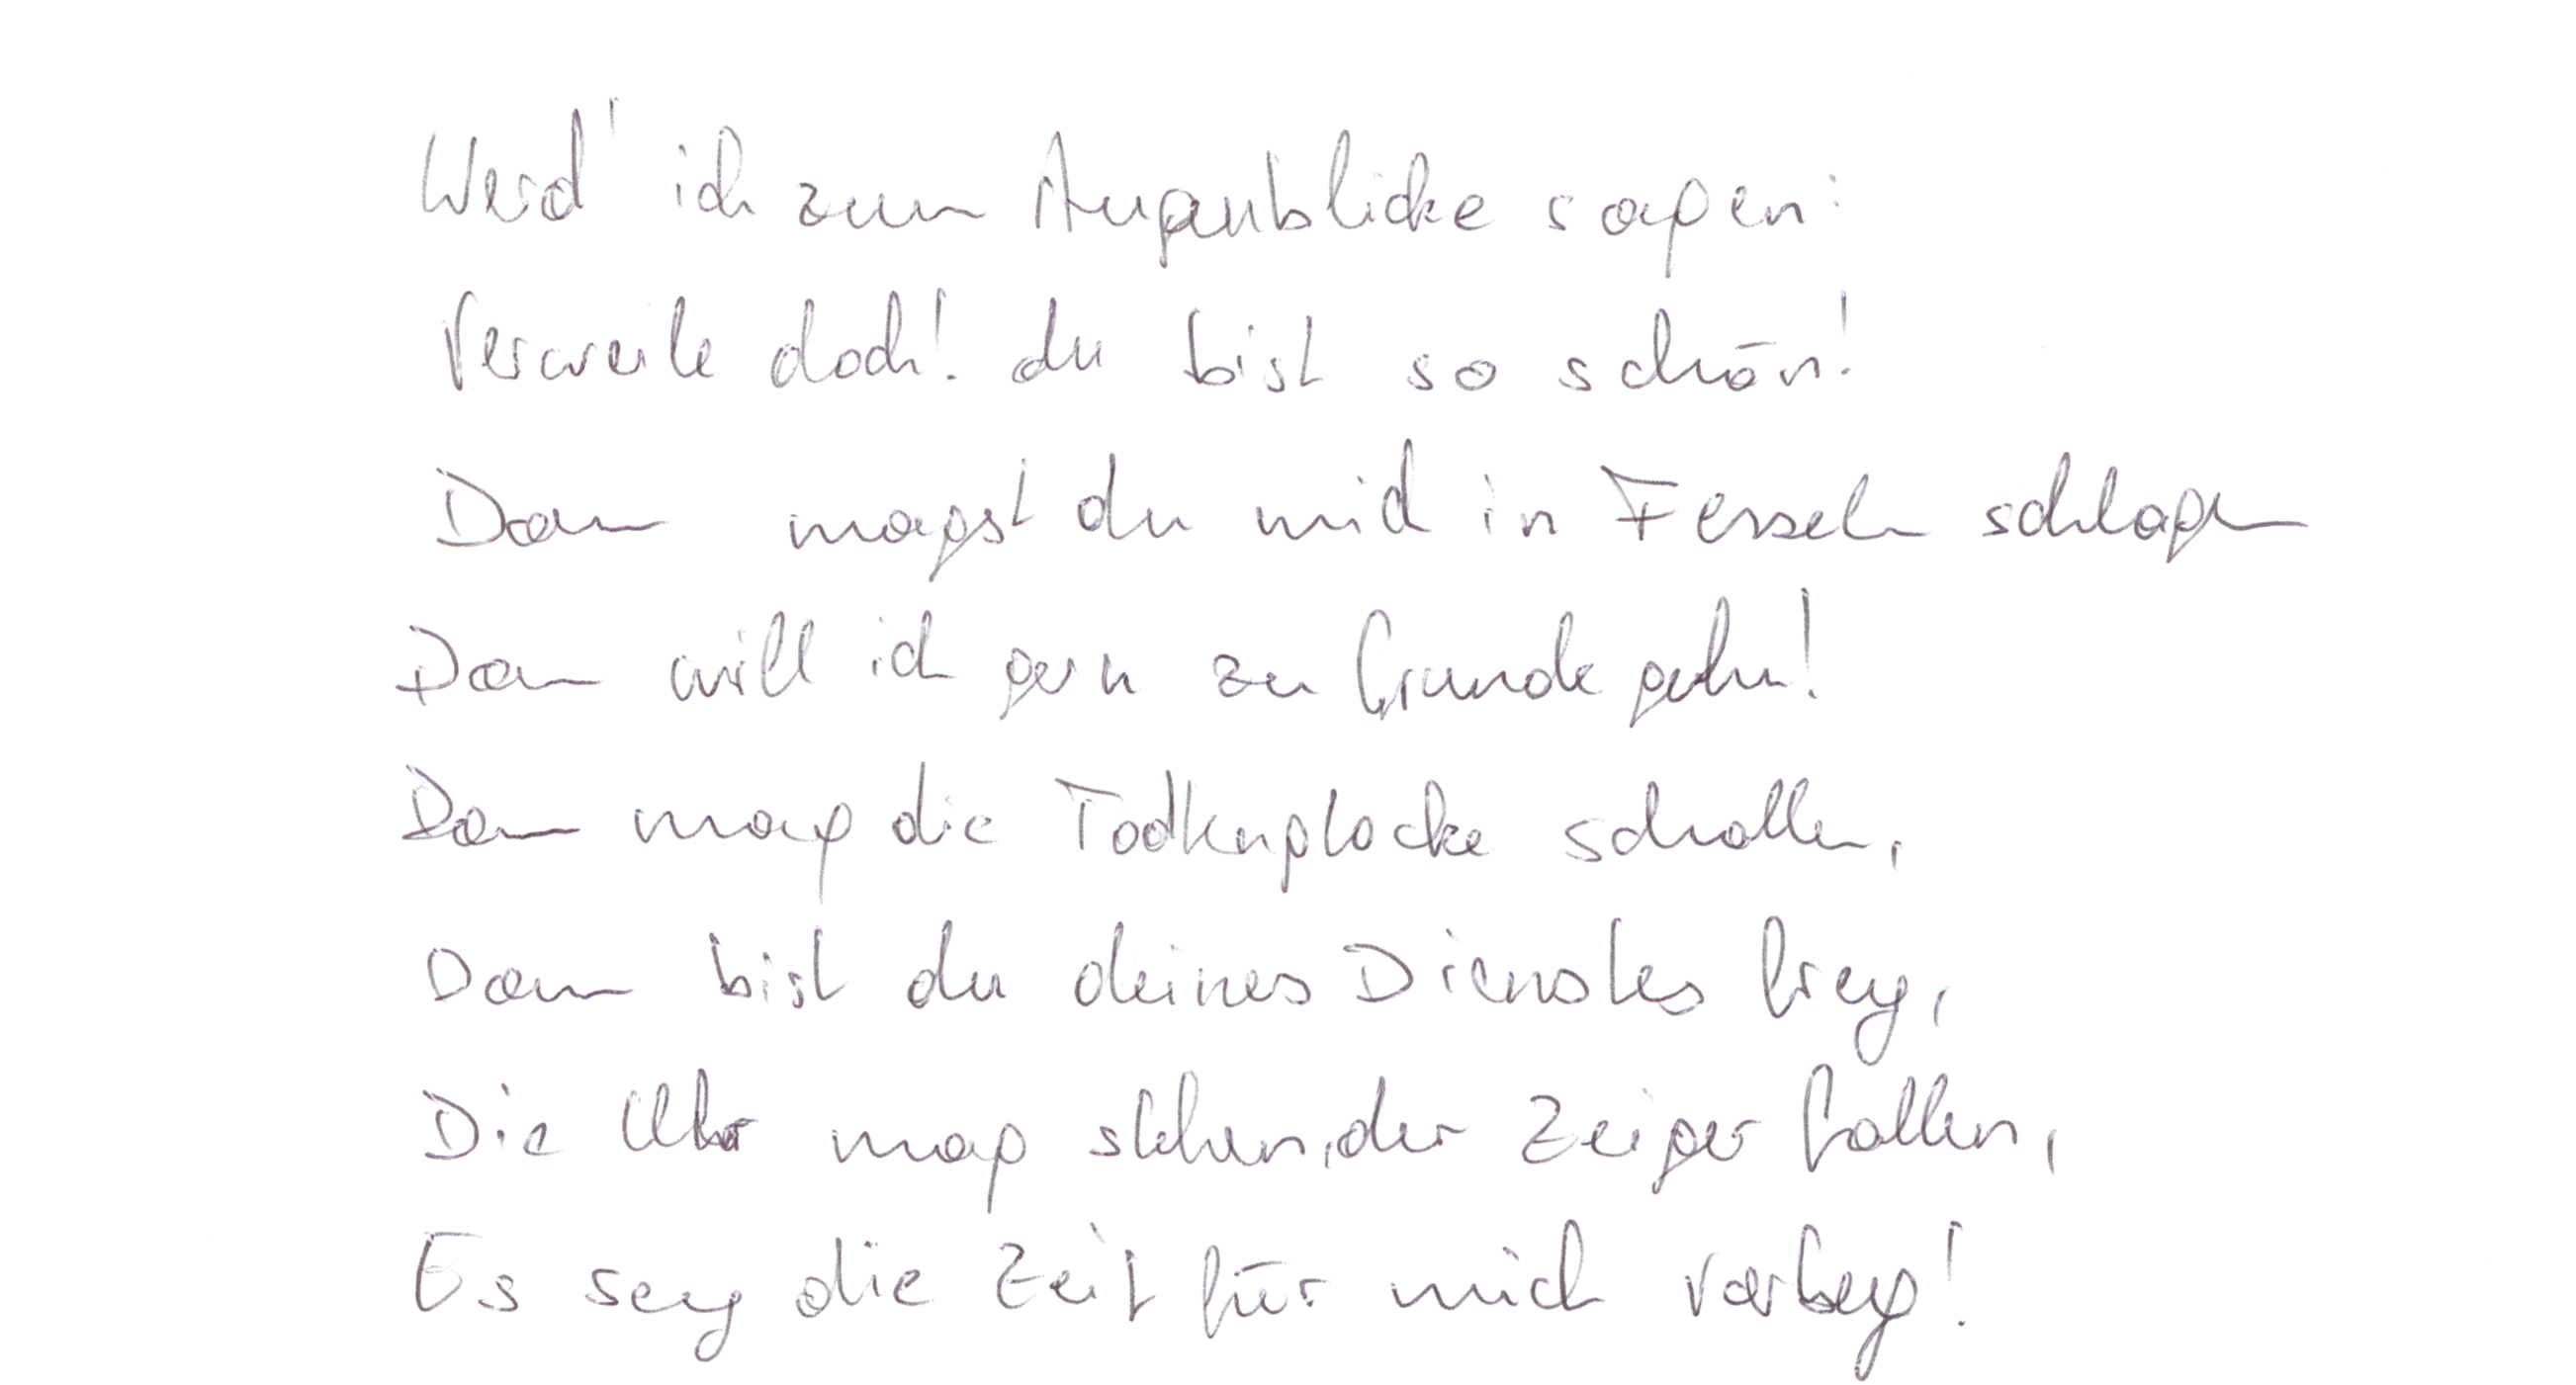 Werd' ich zum Augenblicke sagen:
Verweile doch! du bist so schön!
Dann magst du mich in Fesseln schlagen
Dann will ich gern zu Grunde gehn!
Dann mag die Todtenglocke schallen,
Dann bist du deines Dienstes frey,
Die Uhr mag stehen, der Zeiger fallen,
Es sey die Zeit für mich vorbey!